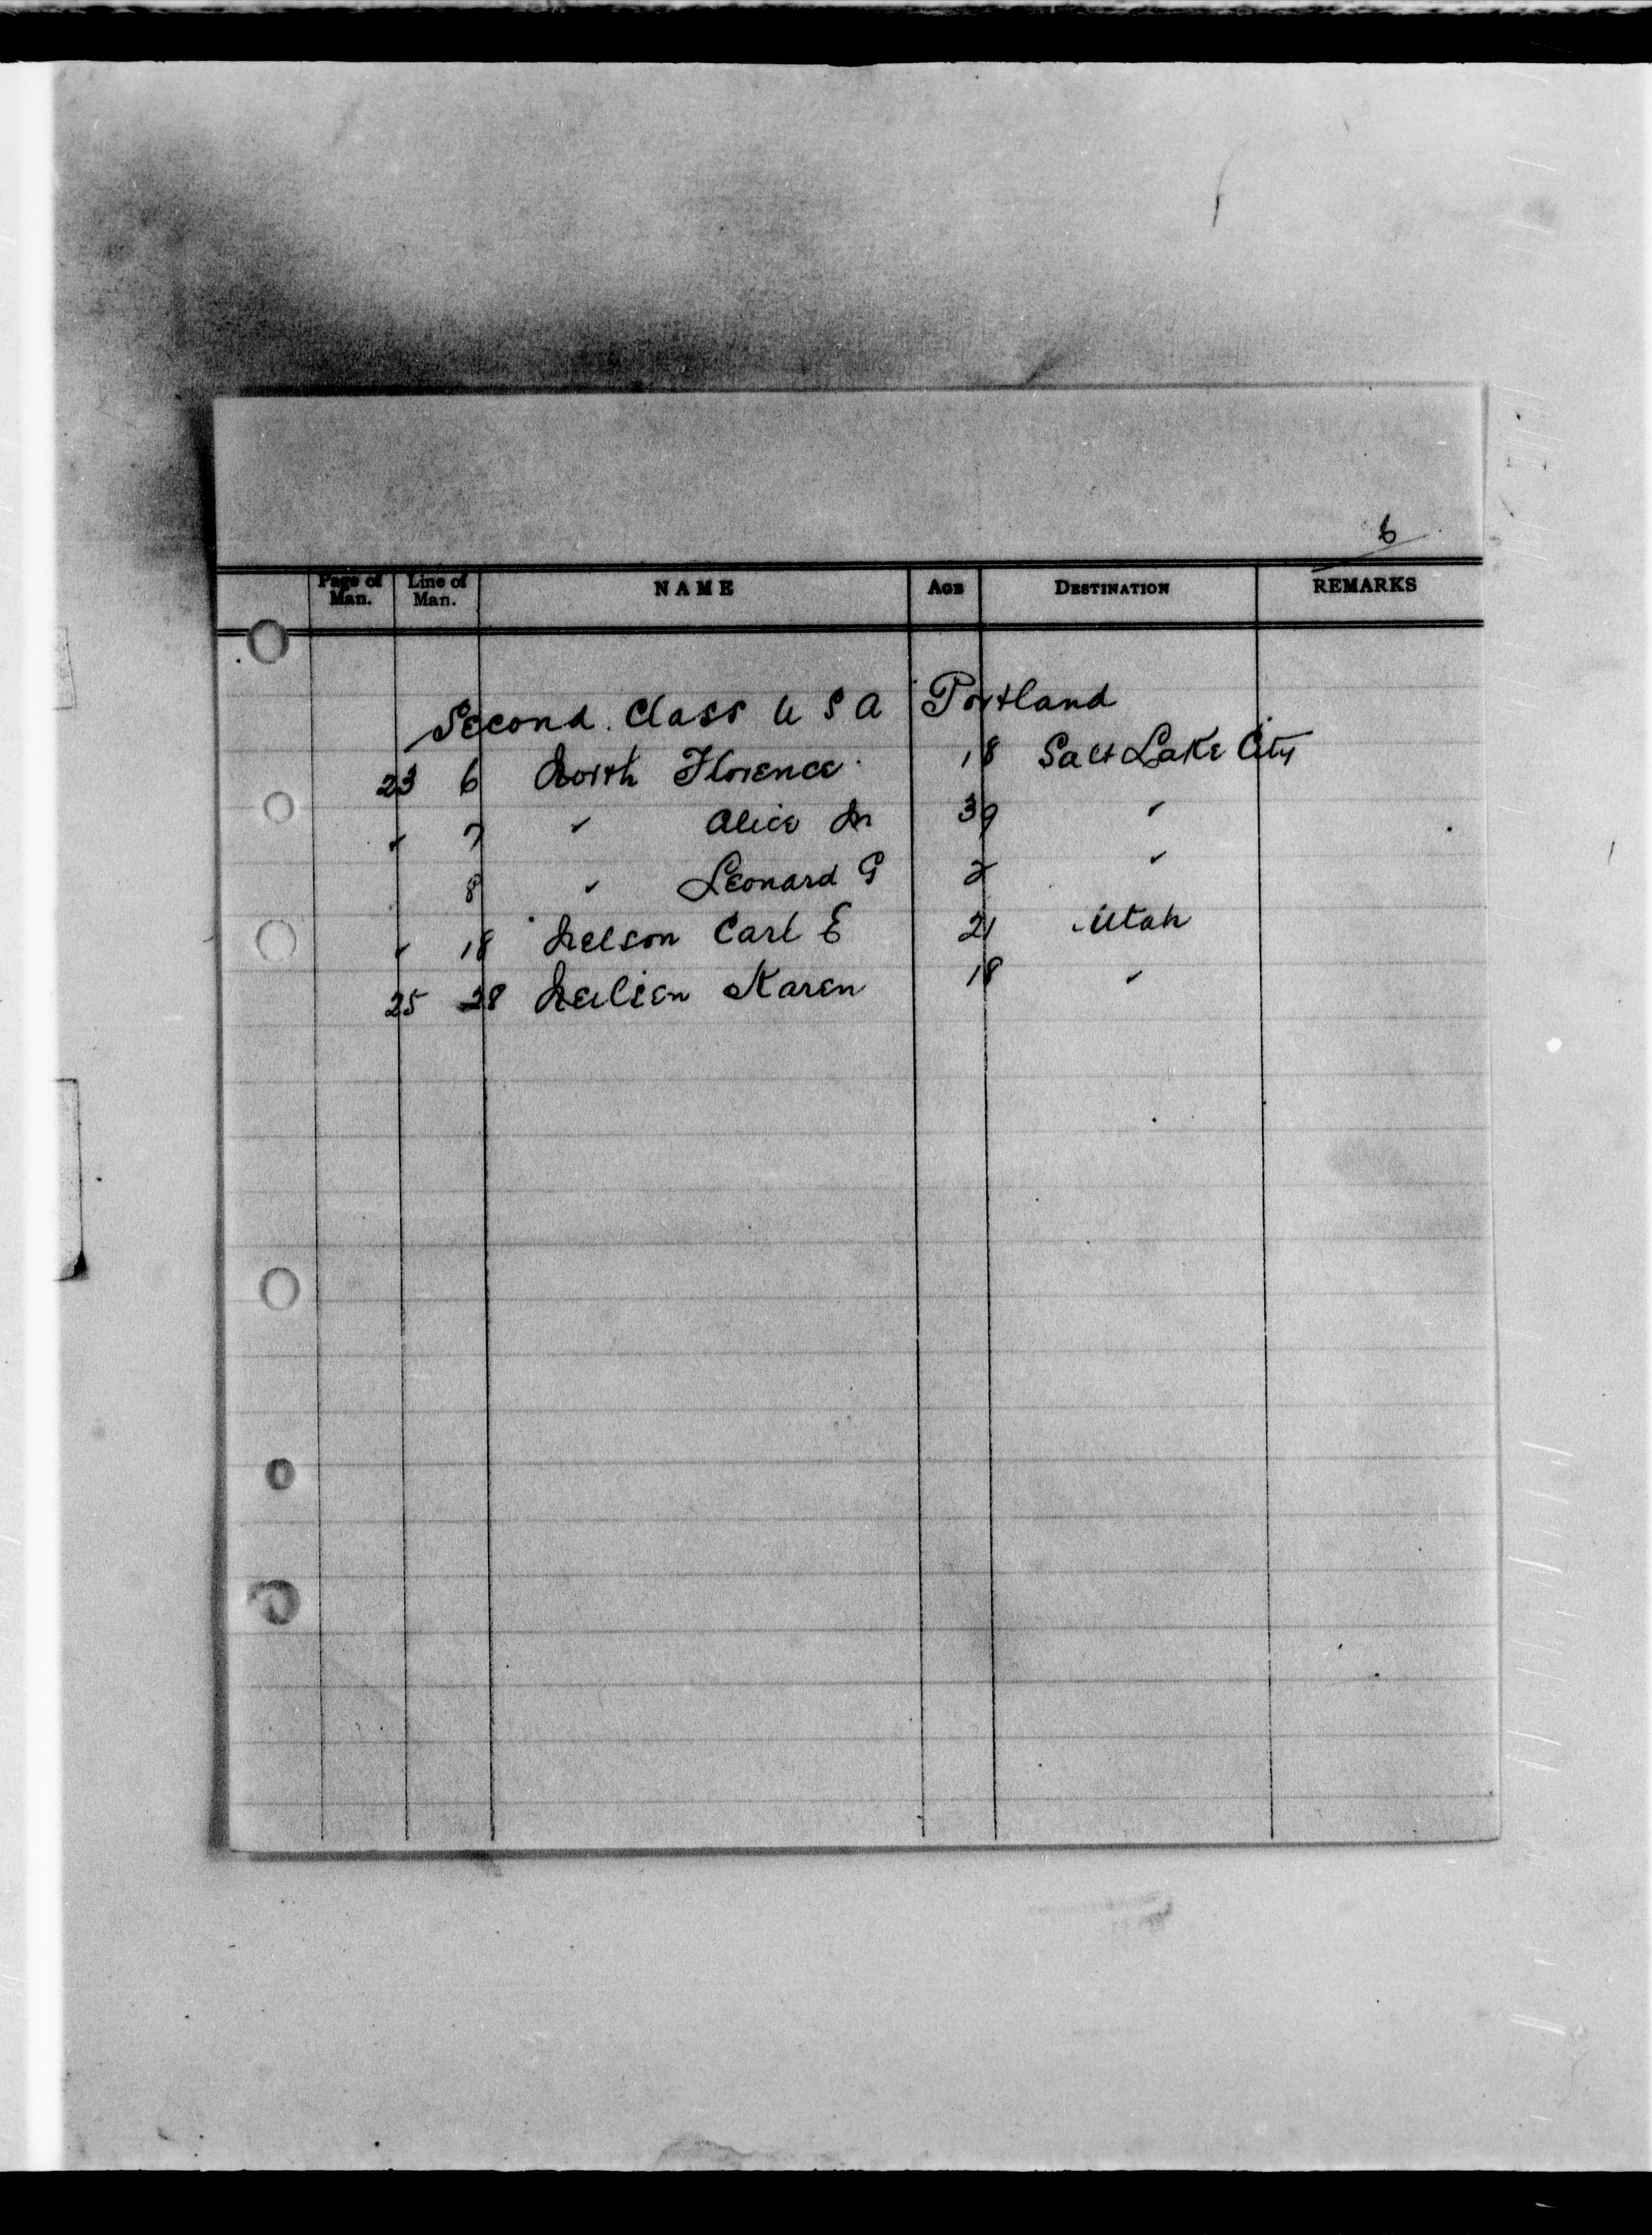 6
Page of Man. Line of Man. NAME AGE DESTINATION REMARKS
Second Class U S A Portland
23 6 North Florence 18 Salt Lake City
" 7 " Alice M 39 "
8 " Leonard G 2 "
" 18 Nelson Carl E 21 Utah
25 28 Neilsen Karen 18 "